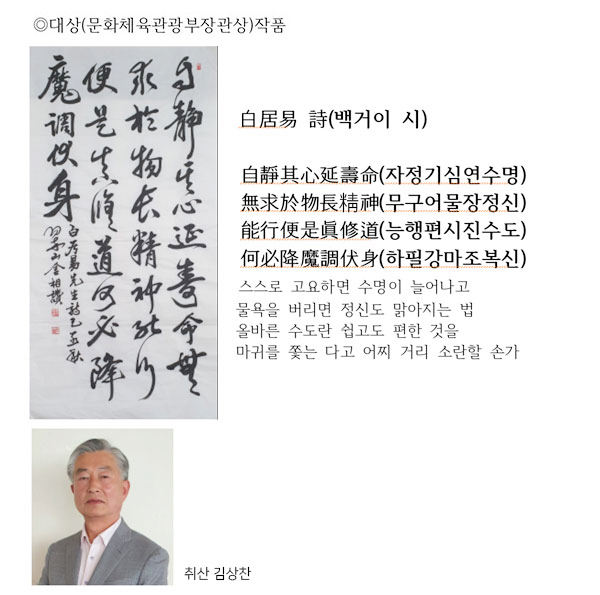 ◎대상(문화체육관광부장관상)작품
自靜其心延壽命無
求於物長精神能行
便是真修道何必降
魔調伏身
白居易 詩(백거이 시)
自靜其心延壽命(자정기심연수명)
無求於物長精神(무구어물장정신)
能行便是眞修道(능행편시진수도)
何必降魔調伏身(하필강마조복신)
스스로 고요하면 수명이 늘어나고
물욕을 버리면 정신도 맑아지는 법
올바른 수도란 쉽고도 편한 것을
마귀를 쫓는 다고 어찌 거리 소란할 손가
취산 김상찬